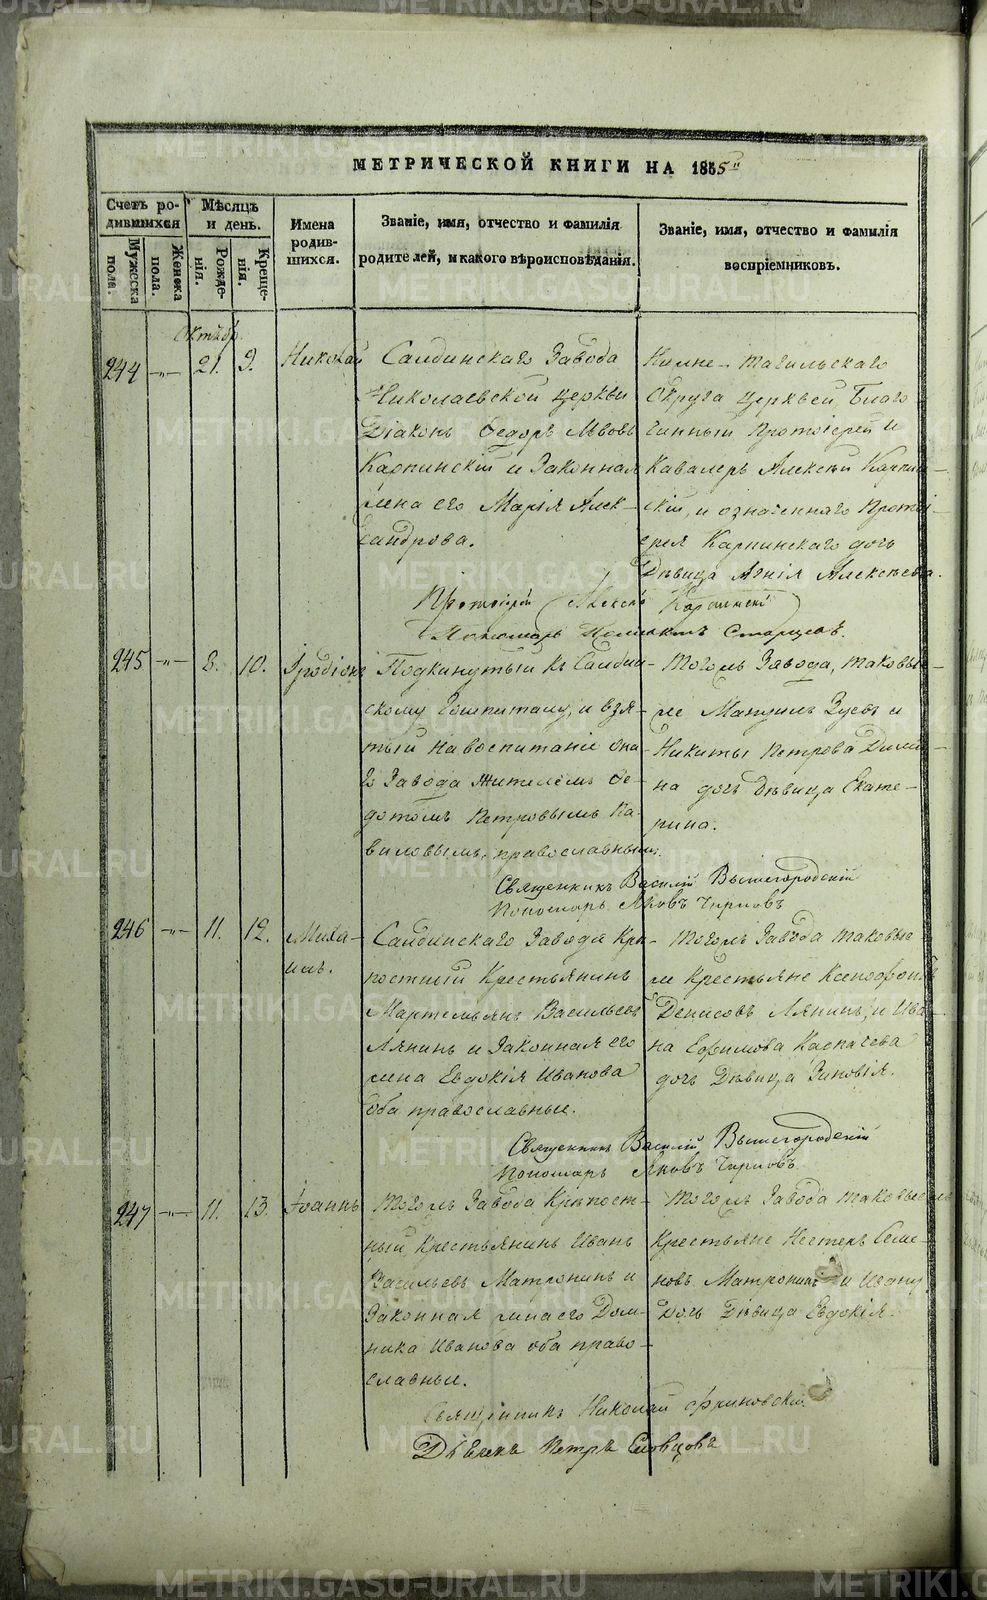 МЕТРИЧЕСКОЙ КНИГИ НА 1855й
Счетъ родившихся
Мѣсяцъ и день.
Имена родившихся.
Званіе, имя, отчество и фамилія родителей, и какого вѣроисповѣданія.
Званіе, имя, отчество и фамилія воспріемниковъ.
Мужеска пола.
Женска пола.
Рожденія.
Крещенія.
Октябр.
244 —"— 21. 9. Николай
Салдинскаго Завода
Николаевской церкви
Діаконъ Ѳедоръ Львовъ
Карпинскій и Законная
жена его Марія Алек-
сандрова.
Нижне-Тагильскаго
Округа церквей, Благо
чинный Протоіерей и
Кавалеръ Алексѣй Карпин-
скій, и означеннаго Протоі-
ерея Карпинскаго дочь
Дѣвица Алексѣева.
Протоіерей Алексѣй Карпинскій
Пономарь Старцовъ.
245 —"— 8. 10. Іродіонъ
Подкинутый къ Салдин-
скому Гошпиталу, и взя-
тый на воспитаніе она-
го Завода Жителемъ Ѳе-
дотомъ Петровымъ Ва-
виловымъ, православнымъ.
Тогожъ Завода, таковы-
же Зуевъ и
Никиты Петрова
на дочь Дѣвица Екате-
рина.
Священникъ Василій Вышегородскій
Пономарь Яковъ Чирковъ
246 —"— 11. 12. Миха-
илъ.
Салдинскаго Завода Крѣ-
постный Крестьянинъ
Мартемьянъ Васильевъ
Лянинъ и Законная его
жена Евдокія Иванова
оба православные.
Тогожъ Завода таковые
же Крестьяне Ксенофонтъ
Денисовъ Лянинъ, и Ива-
на Ефимова
дочь Дѣвица Зиновія.
Священникъ Василій Вышегородскій
Пономарь Яковъ Чирковъ
247 —"— 11. 13. Іоаннъ
Тогожъ Завода Крѣпост-
ный Крестьянинъ Иванъ
Васильевъ Матронинъ и
Законная жена его Дом-
ника Иванова оба право-
славные.
Тогожъ Завода таковыежъ
Крестьяне Нестеръ Семе-
новъ Матронинъ и Ивана
Дочь Дѣвица Евдокія.
Священникъ Николай Фриновскій
Дьячекъ Петръ Словцовъ
METRIKI.GASO-URAL.RU